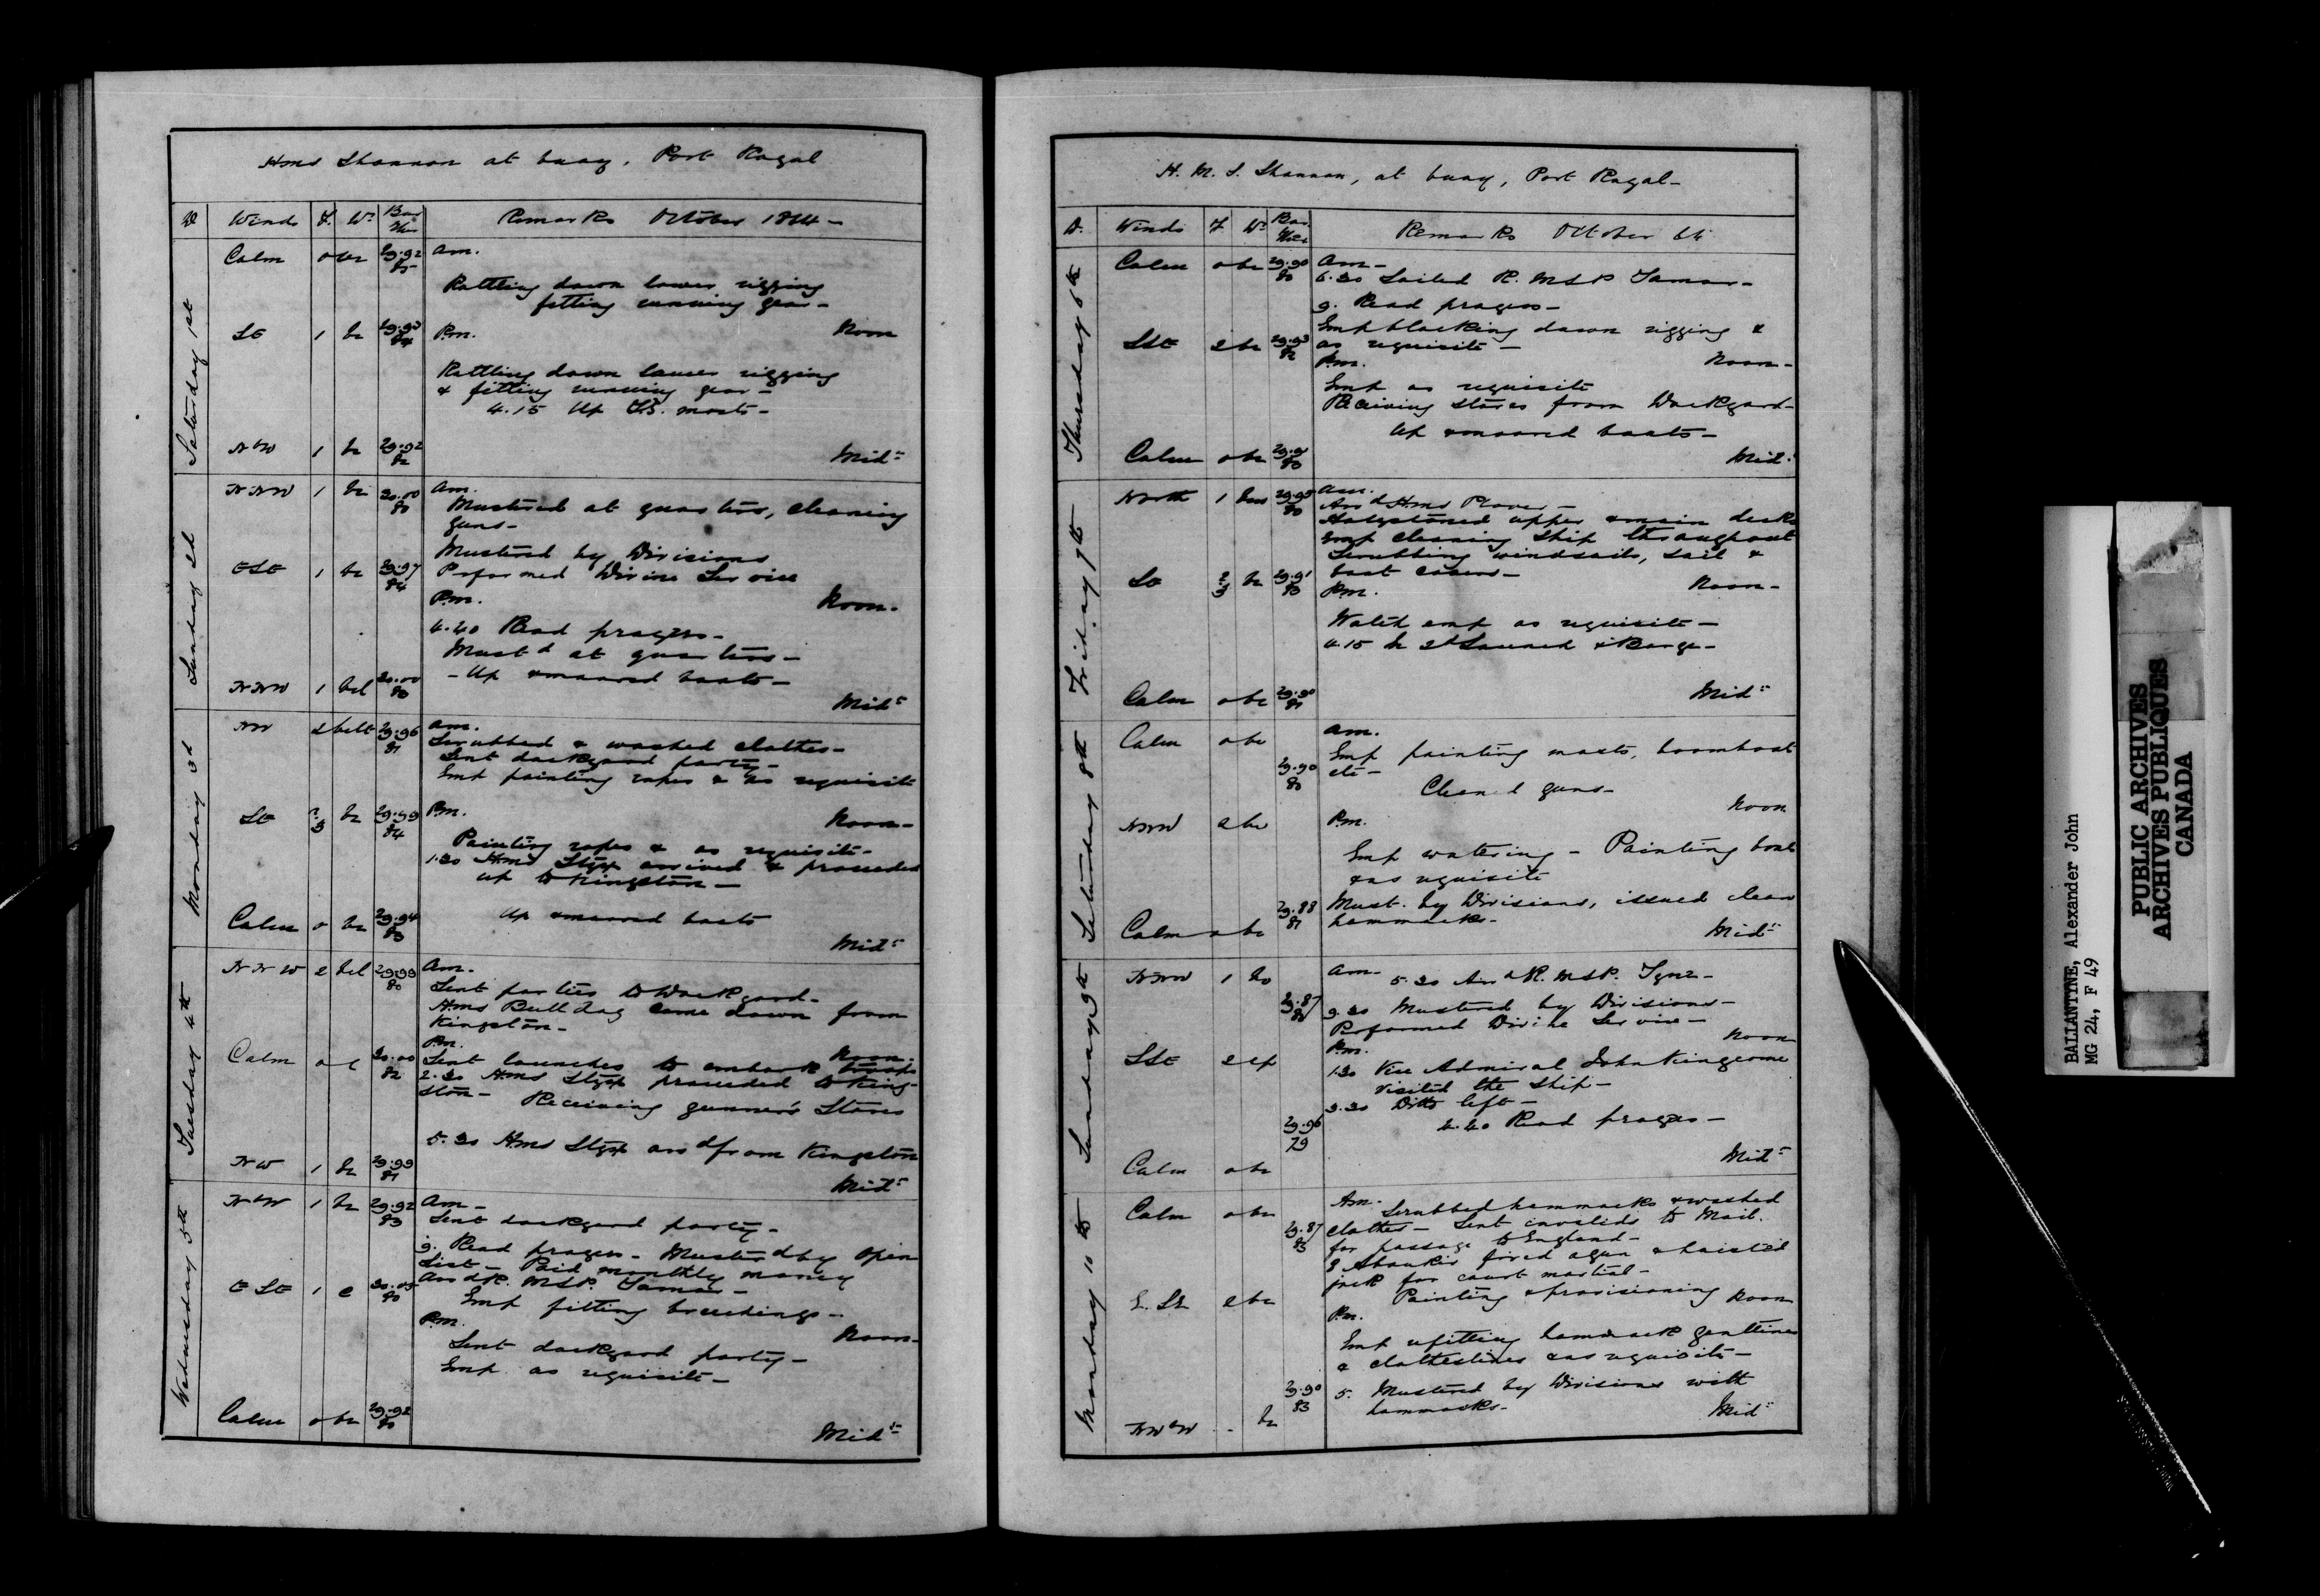 HMS Shannon at buoy, Port Royal
D Winds F. Wr Bar Ther Remarks October 1864 -
Saturday 1st
Calm 0 bc 29.92 85 Am.
Rattling down lower rigging
fitting running gear -
SE 1 bc 29.93 84 Pm. Noon
Rattling down lower rigging
& fitting running gear -
4.15 Up masts -
NbW 1 bc 29.92 82 Midt
Sunday 2d
NNW 1 bc 30.00 80 Am.
Mustered at quarters, cleaning
guns -
Mustered by Divisions
ESE 1 bc 29.97 84 Performed Divine Service
Pm. Noon -
4.40 Read prayers -
Mustd at quarters -
- Up & moored boats -
NNW 1 bcl 30.00 80 Midt
Monday 3d
NW 2 bclt 29.96 81 Am.
Scrubbed & washed clothes -
Sent dockyard party -
Emp pointing ropes & as requisite
SE 2 3 bc 29.99 84 Pm. Noon -
Pointing ropes & as requisite -
1.30 HMS Styx arrived & proceeded
up to Kingston -
Up & moored boats
Calm 0 bc 29.94 83 Midt
Tuesday 4th
NNW 2 bcl 29.99 80 Am.
Sent parties to Dockyard -
HMS Bull dog came down from
Kingston -
Pm. Noon -
Calm 0 c 30.00 82 Sent launches to embark troops
2.30 HMS Styx proceeded to King-
ston - Receiving gunner's Stores
5.30 HMS Styx arrd from Kingston
NW 1 bc 29.99 81 Midt
Wednesday 5th
NbW 1 bc 29.92 83 Am -
Sent dockyard party -
9. Read prayers - Musterd by open
List - Paid monthly money
ESE 1 c 30.05 80 Arrd R. MSP. Tamar -
Emp fitting breechings -
Pm. Noon -
Sent dockyard party -
Emp as requisite -
Calm 0 bc 29.92 80 Midt
H. M. S. Shannon, at buoy, Port Royal -
D. Winds F Wr Bar Ther Remarks October 64
Thursday 6th
Calm 0 bc 29.90 80 Am -
6.30 Sailed R. MSP Tamar -
9. Read prayers -
Emp blacking down rigging &
SSE 2 bc 29.93 82 as requisite -
Pm. Noon -
Emp as requisite
Receiving stores from Dockyard -
Up & moored boats -
Calm 0 bc 80 Midt
Friday 7th
North 1 29.95 80 Am.
Arrd HMS Plover -
Holystoned upper & main decks
Emp cleaning ship throughout
Scrubbing windsails, sail &
SE 2 3 bc 29.91 boat covers -
Pm. Noon -
Watch emp as requisite -
4.15 In 2d Launch & Barge -
Calm 0 bc 29.90 81 Midt
Saturday 8th
Calm 0 bc Am.
Emp painting masts, boomboat
29.90 80 etc -
Cleaned guns -
Noon
NNW 2 bc Pm.
Emp watering - Painting boat
& as requisite
29.88 81 Must. by Divisions, issued clean
Calm 0 bc hammocks - Midt
Sunday 9th
NNW 1 bc Am - 5.30 Arrd R. MSP. Tyne -
29.87 9.30 Mustered by Divisions -
Performed Divine Service - Noon
SSE 2 Pm.
1.30 Vice Admiral John Kingcome
visited the Ship -
3.30 Ditto left -
29.96 79 4.40 Read prayers -
Calm 0 bc Midt
Monday 10th
Calm 0 bc Am. Scrubbed hammocks & washed
29.87 83 clothes - Sent invalids to Mail.
for passage to England -
8 Aboukir fired a gun & hoisted
jack for court martial -
E. SE 2 bc Painting & provisioning Noon
Pm.
Emp refitting hammock gantlines
& clotheslines & as requisite -
29.90 83 5. Mustered by Divisions with
NWbW - bc hammocks - Midt
BALLANTYNE, Alexander John
MG 24, F 49
PUBLIC ARCHIVES
ARCHIVES PUBLIQUES
CANADA